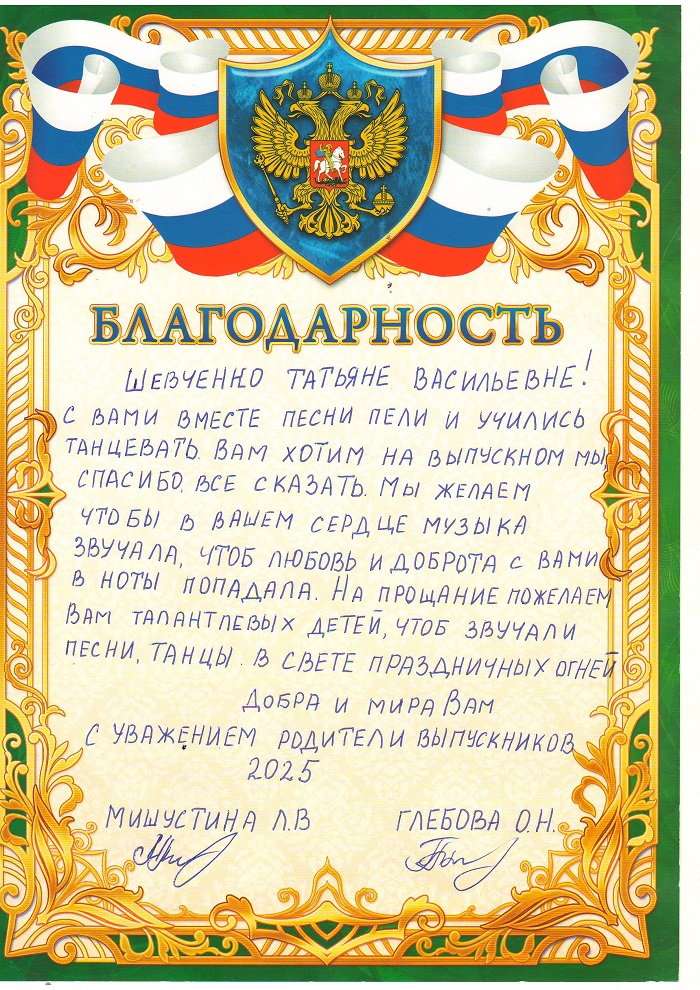 БЛАГОДАРНОСТЬ
ШЕВЧЕНКО ТАТЬЯНЕ ВАСИЛЬЕВНЕ!
С ВАМИ ВМЕСТЕ ПЕСНИ ПЕЛИ И УЧИЛИСЬ
ТАНЦЕВАТЬ. ВАМ ХОТИМ НА ВЫПУСКНОМ МЫ,
СПАСИБО, ВСЕ СКАЗАТЬ. МЫ ЖЕЛАЕМ
ЧТОБЫ В ВАШЕМ СЕРДЦЕ МУЗЫКА
ЗВУЧАЛА, ЧТОБ ЛЮБОВЬ И ДОБРОТА С ВАМИ
В НОТЫ ПОПАДАЛА. НА ПРОЩАНИЕ ПОЖЕЛАЕМ
ВАМ ТАЛАНТЛЕВЫХ ДЕТЕЙ, ЧТОБ ЗВУЧАЛИ
ПЕСНИ, ТАНЦЫ. В СВЕТЕ ПРАЗДНИЧНЫХ ОГНЕЙ
ДОБРА И МИРА ВАМ
С УВАЖЕНИЕМ РОДИТЕЛИ ВЫПУСКНИКОВ
2025
МИШУСТИНА Л.В ГЛЕБОВА О.Н.